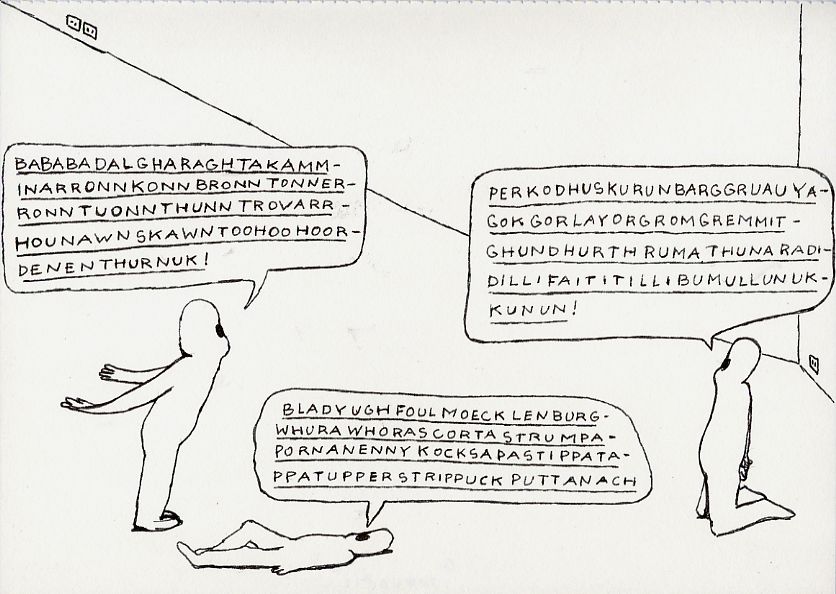 BABABADALGHARAGHTAKAMM-
INARRONNKONNBRONNTONNER-
RONNTUONNTHUNNTROVARR-
HOUNAWNSKAWNTOOHOOHOOR-
DENENTHURNUK!
PERKODHUSKURUNBARGGRUAUYA-
GOKGORLAYORGROMGREMMIT-
GHUNDHURTHRUMATHUNARADI-
DILLIFAITITILLIBUMULLUNUK-
KUNUN!
BLADYUGHFOULMOECKLENBURG-
WHURAWHORASCORTASTRUMPA-
PORNANENNYKOCKSAPASTIPPATA-
PPATUPPERSTRIPPUCKPUTTANACH